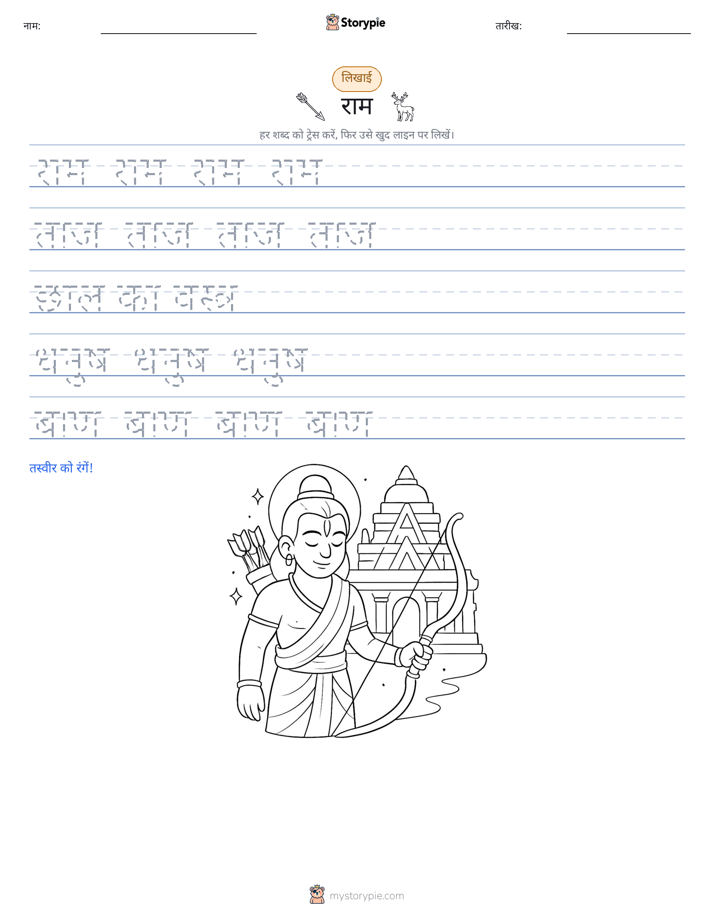 नाम:
Storypie
तारीख:
लिखाई
राम
हर शब्द को ट्रेस करें, फिर उसे खुद लाइन पर लिखें।
राम राम राम राम
ताज ताज ताज ताज
छाल का वस्त्र
धनुष धनुष धनुष
बाण बाण बाण बाण
तस्वीर को रंगें!
mystorypie.com